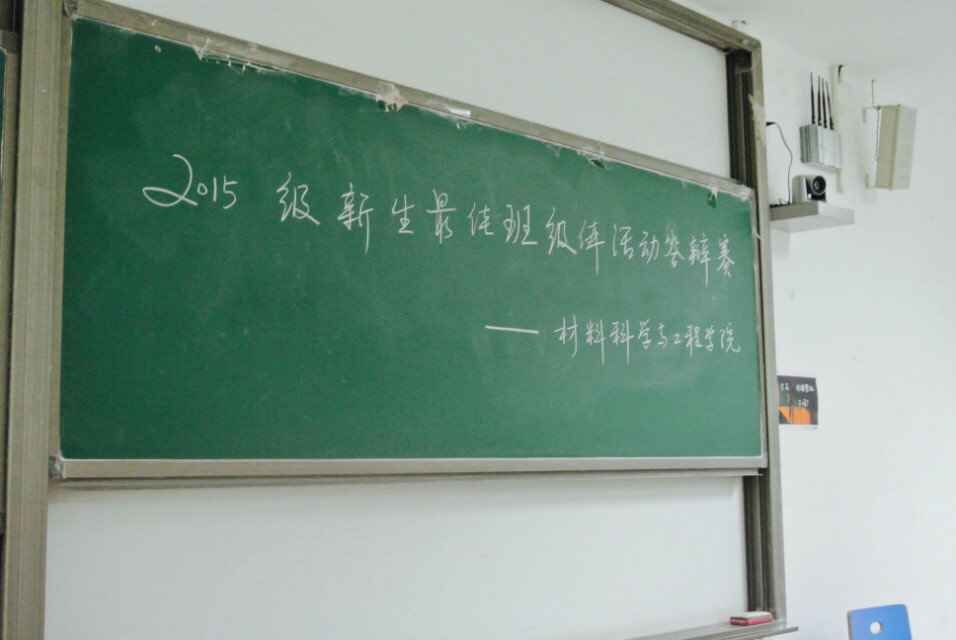 2015 级新生最佳班级体活动答辩赛
—— 材料科学与工程学院